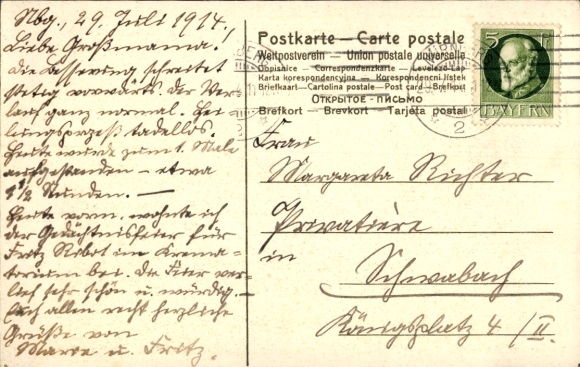 Nbg., 29. Juli 1914!
Liebe Großmama!
Die Besserung schreitet
stetig vorwärts. Der Ver-
lauf ganz normal. Hei-
lungsprozeß tadellos.
Heute wurde zum 1. Male
aufgestanden – etwa
1 1/2 Stunden. —
Heute vorm. wohnte ich
der Gedächtnisfeier für
Fritz in Krema-
torium bei. Die Feier ver-
lief sehr schön u. würdig. —
Euch allen recht herzliche
Grüße von
u. Fritz.
Postkarte – Carte postale
Weltpostverein – Union postale universelle
Dopisnice – Correspondenzkarte – Levelező-Lap
Karta korespondencyjna – Korespondenční lístek
Briefkaart – Cartolina postale – Post card – Brefkort
ОТКРЫТОЕ - ПИСЬМО
Brefkort – Brevkort – Tarjeta postal
5
BAYERN
2
Frau
Margareta Richter
Privatière
in
Schwabach
Königsplatz 4/II.